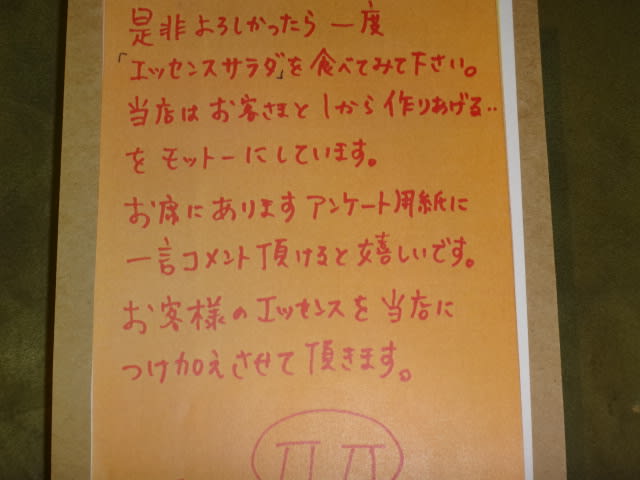 是非よろしかったら一度
「エッセンスサラダ」を食べてみて下さい。
当店はお客さまと1から作りあげる‥
をモットーにしています。
お席にありますアンケート用紙に
一言コメント頂けると嬉しいです。
お客様のエッセンスを当店に
つけ加えさせて頂きます。